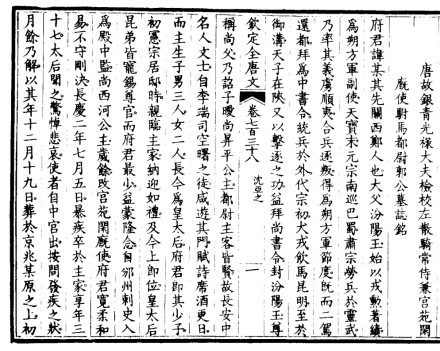 唐故銀青光祿大夫檢校左散騎常侍兼宮苑閑
廐使駙馬都尉郭公墓誌銘
府君諱某其先關西鄭人也大父汾陽王始以戎勲著續
為朔方軍副使天寶末元宗南巡巴蜀肅宗勞兵於靈武
乃率其義虜順夷合兵逐叛得為朔方軍節度既而二駕
還都拜為中書令統兵於外代宗初犬戎飲馬昆明至於
御溝天子在陝又以擊逐之功益拜尚書令封汾陽王尊
欽定全唐文
卷七百三十八
沈亞之
一
稱尚父乃詔子曖尚昇平公主都尉主客皆賢故長安中
名人文士自李端司空曙之徒咸遊其門賦詩席酒更日
而主生子男三人女二人長令為皇太后府君即其少子
初憲宗居邸時親臨主家納迎如禮及今上即位皇太后
昆弟皆寵錫尊官而府君最少益蒙隆念自邠州刺史入
為殿中監尚西河公主歲餘改宮苑閑廐使府君寬柔和
易不守剛決長慶二年七月五日暴疾卒於主家享年三
十七太后聞之驚惟悲哀使者自中宮出按問發疾之狀
月餘乃解以其年十二月十九日葬於京兆某原之上初